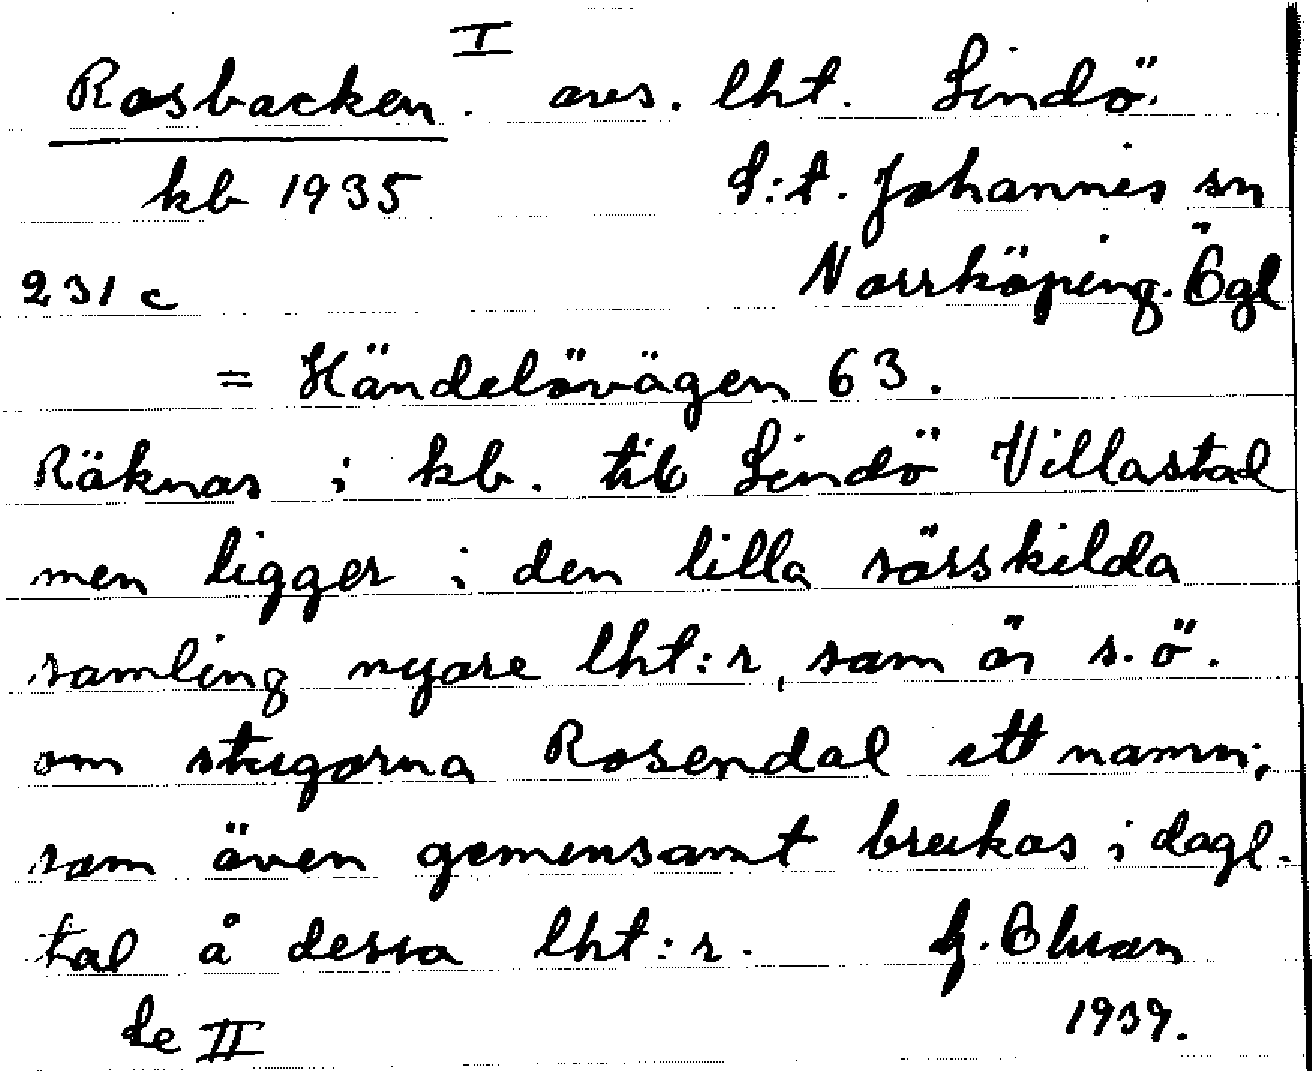 I
Rosbacken. avs. lht. Lindö.
kb 1935 S:t. Johannis sn
231 c Norrköping. Ögl
= Händelövägen 63.
Räknas i kb. till Lindö Villastad
men ligger i den lilla särskilda
samling nyare lht:r, som är s.ö.
om stugorna Rosendal ett namn,
som även gemensamt brukas i dagl.
tal å dessa lht:r. G. Olsson
Se II 1939.